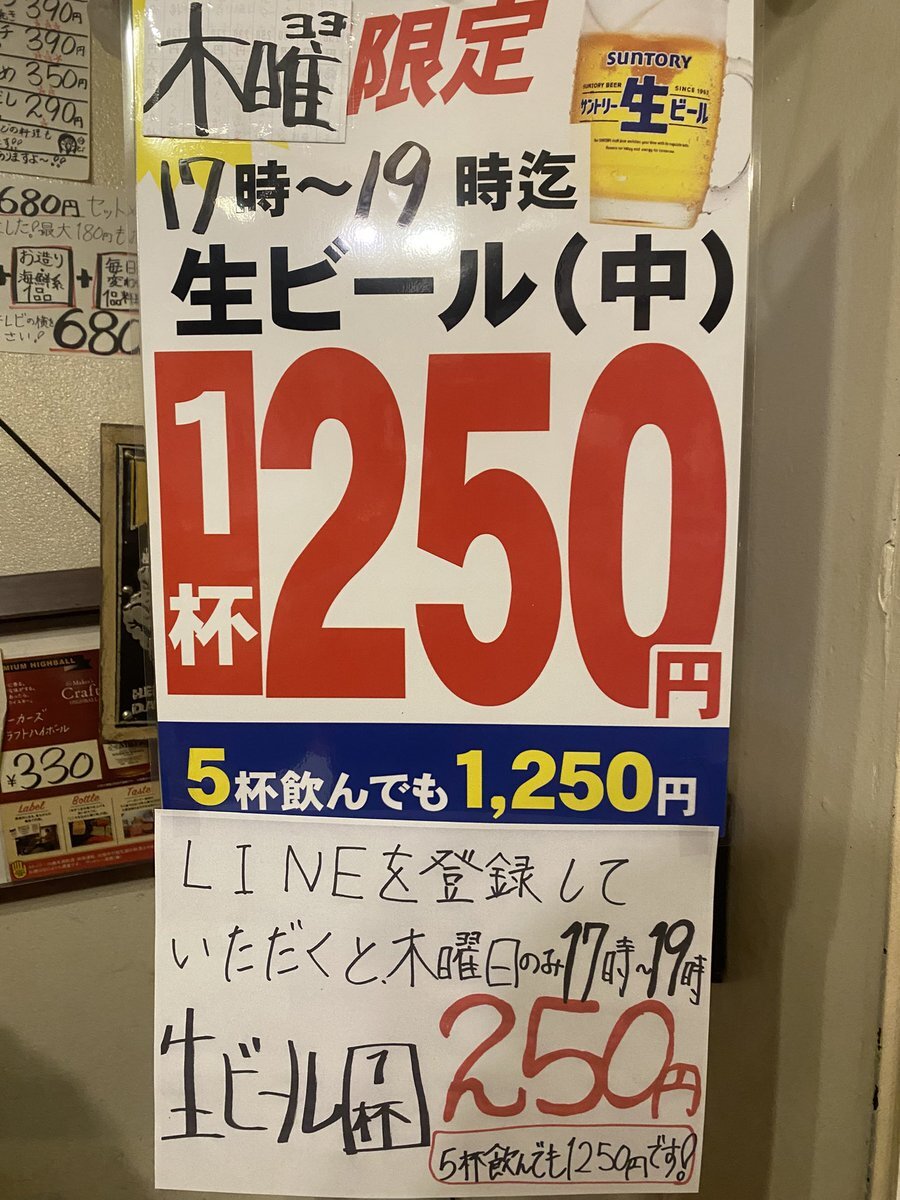 木曜限定
SUNTORY
SUNTORY BEER
SINCE 1963
サントリー生ビール
17時～19時迄
生ビール(中)
1杯250円
5杯飲んでも1,250円
LINEを登録して
いただくと、木曜日のみ17時～19時
生ビール1杯250円
5杯飲んでも1250円です!
390円
390円
350円
290円
680円セット
最大180円も
お造り
海鮮系
1品
+
毎日
変わ
1品料
680
MIUM HIGHBALL
Maker's
Craft
ーカーズ
ラフトハイボール
¥330
Label
Bottle
Taste